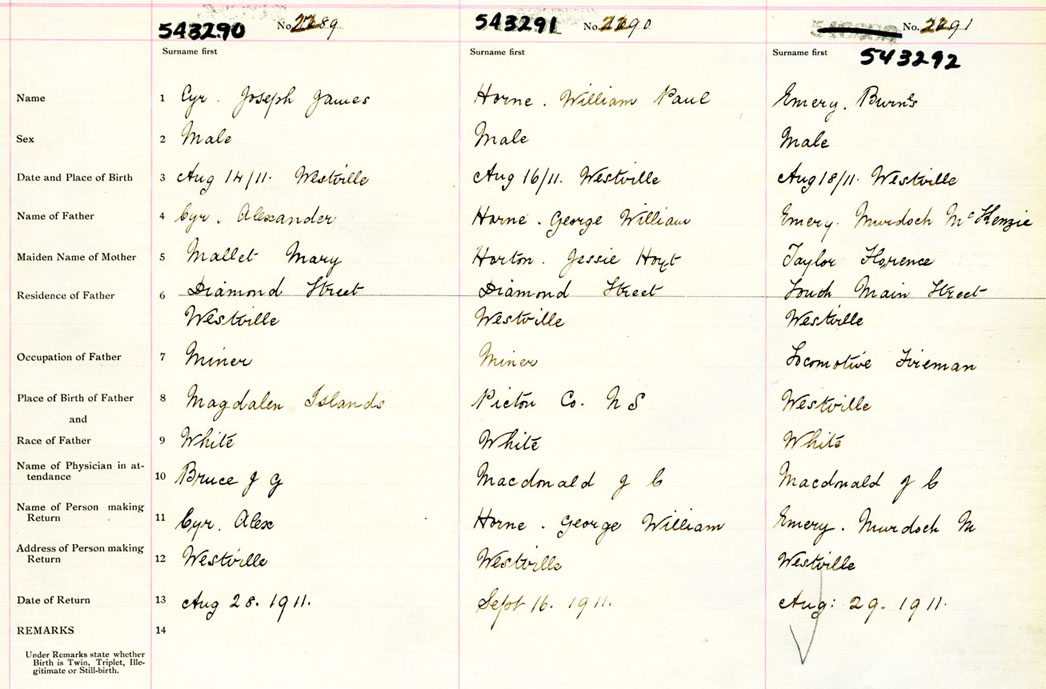 543290 No. 2289 543291 No. 2290 No. 2291
Surname first Surname first Surname first 543292
Name 1 Cyr. Joseph James Horne. William Paul Emery. Burns
Sex 2 Male Male Male
Date and Place of Birth 3 Aug 14/11. Westville Aug 16/11. Westville Aug 18/11. Westville
Name of Father 4 Cyr. Alexander Horne. George William Emery. Murdoch McKenzie
Maiden Name of Mother 5 Mallet Mary Horton. Jessie Hoyt Taylor Florence
Residence of Father 6 Diamond Street Diamond Street South Main Street
Westville Westville Westville
Occupation of Father 7 Miner Miner Locomotive Fireman
Place of Birth of Father 8 Magdalen Islands Pictou Co. N S Westville
and
Race of Father 9 White White White
Name of Physician in at-
tendance 10 Bruce J G Macdonald J C Macdonald J C
Name of Person making
Return 11 Cyr. Alex Horne. George William Emery. Murdoch M
Address of Person making
Return 12 Westville Westville Westville
Date of Return 13 Aug 28. 1911. Sept 16. 1911. Aug: 29. 1911.
REMARKS 14
Under Remarks state whether
Birth is Twin, Triplet, Ille-
gitimate or Still-birth.